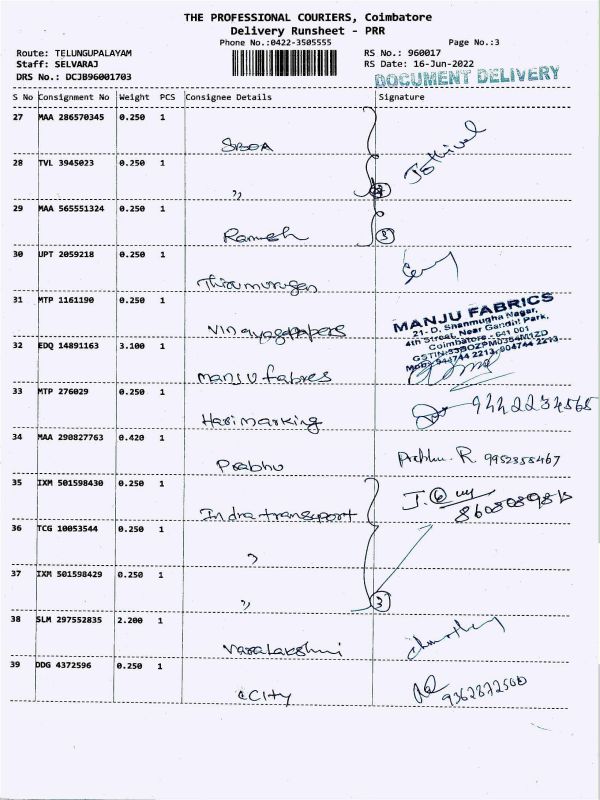 THE PROFESSIONAL COURIERS, Coimbatore
Delivery Runsheet - PRR
Phone No.:0422-3505555
Page No.:3
Route: TELUNGUPALAYAM
RS No.: 960017
Staff: SELVARAJ
RS Date: 16-Jun-2022
DRS No.: DCJB96001703
DOCUMENT DELIVERY
S No Consignment No Weight PCS Consignee Details Signature
27 MAA 286570345 0.250 1
SBOA
28 TVL 3945023 0.250 1
"
29 MAA 565551324 0.250 1
Ramesh ③
30 UPT 2059218 0.250 1
Thirumurugan
31 MTP 1161190 0.250 1
Vinayagapapers
MANJU FABRICS
21- D, Shanmugha Nagar,
4th Street, Near Gandhi Park,
Coimbatore - 641 001
32 EDQ 14891163 3.100 1
Manju fabres
33 MTP 276029 0.250 1
Harimarking
34 MAA 290827763 0.420 1
Prabhu R. 9952358467
35 IXM 501598430 0.250 1
Indra transport
36 TCG 10053544 0.250 1
"
37 IXM 501598429 0.250 1
" ③
38 SLM 297552835 2.200 1
Varalakshmi
39 DDG 4372596 0.250 1
CCity